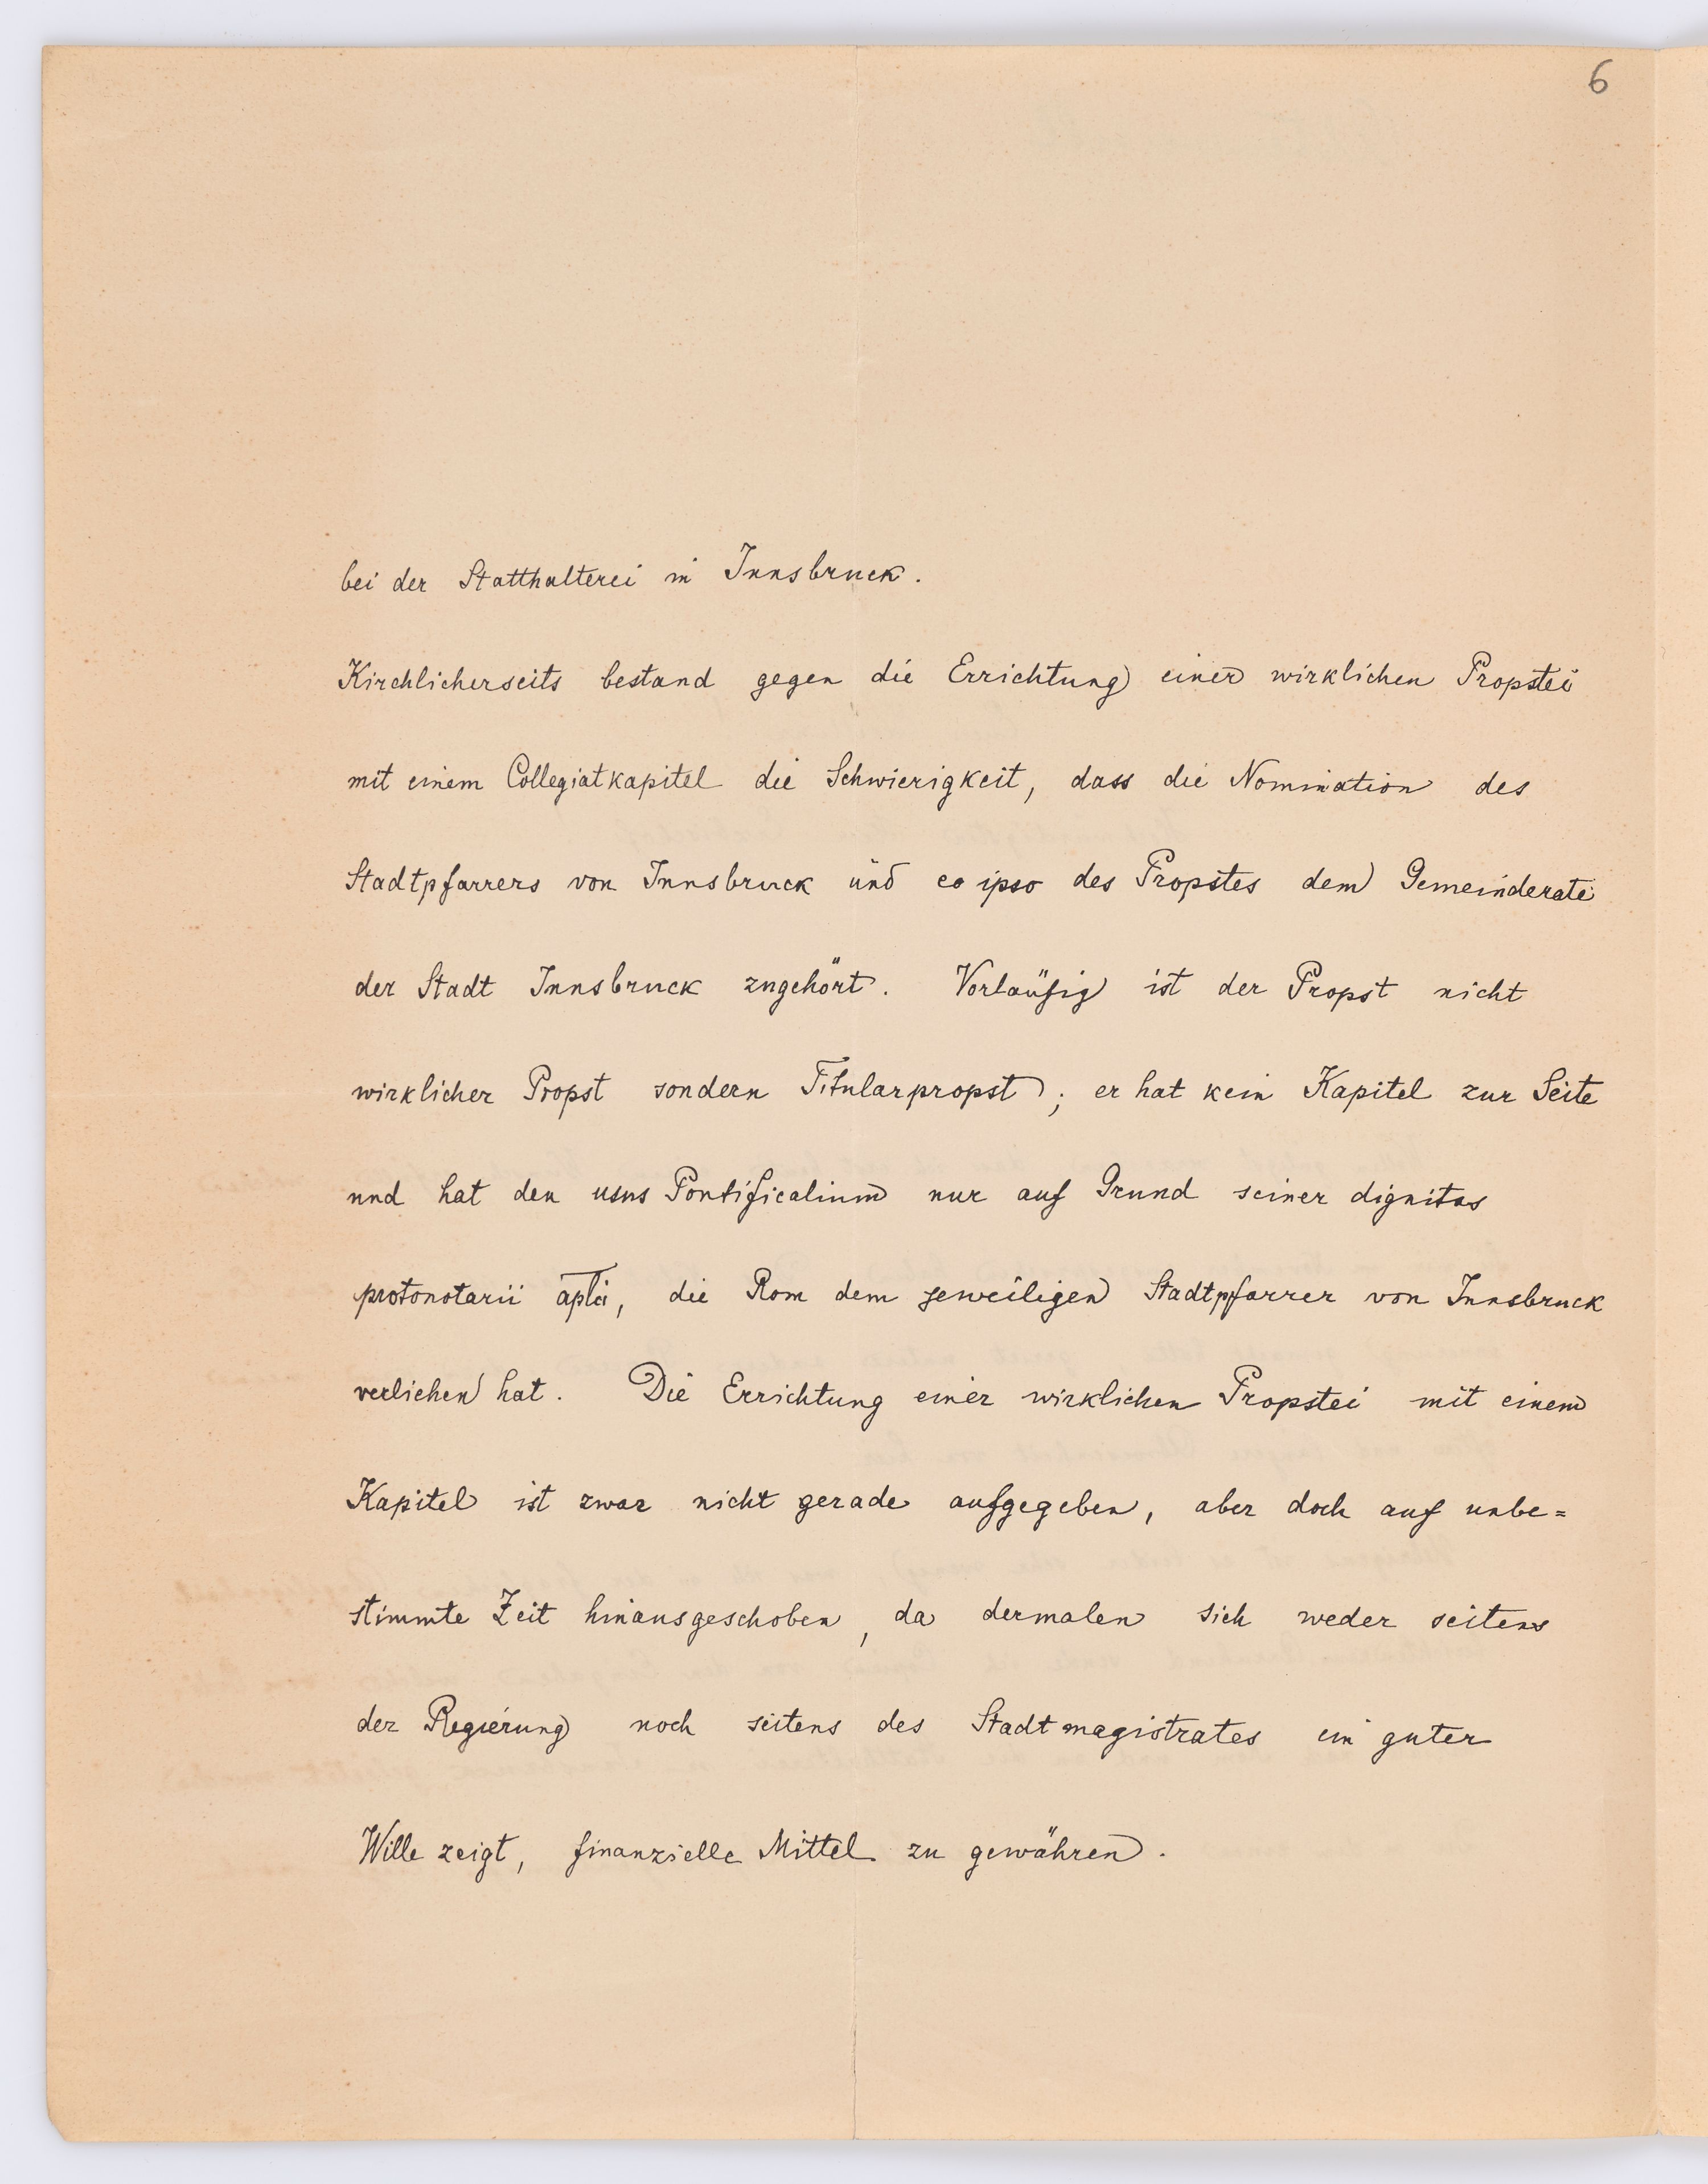 6
bei der Statthalterei in Innsbruck.
Kirchlicherseits bestand gegen die Errichtung einer wirklichen Propstei
mit einem Collegiatkapitel die Schwierigkeit, dass die Nomination des
Stadtpfarrers von Innsbruck und eo ipso des Propstes dem Gemeinderate
der Stadt Innsbruck zugehört. Vorläufig ist der Propst nicht
wirklicher Propst sondern Titularpropst; er hat kein Kapitel zur Seite
und hat den usus Pontificalium nur auf Grund seiner dignitas
protonotarii ap̅l̅i̅, die Rom dem jeweiligen Stadtpfarrer von Innsbruck
verliehen hat. Die Errichtung einer wirklichen Propstei mit einem
Kapitel ist zwar nicht gerade aufgegeben, aber doch auf unbe=
stimmte Zeit hinausgeschoben, da dermalen sich weder seitens
der Regierung noch seitens des Stadtmagistrates ein guter
Wille zeigt, finanzielle Mittel zu gewähren.